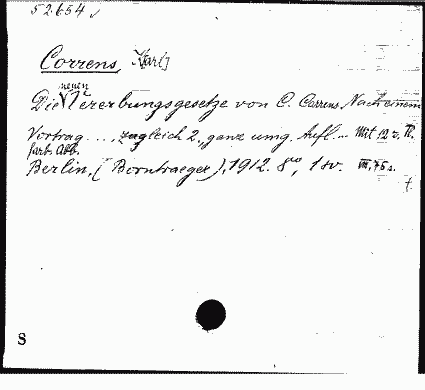 52654
Correns, Karl]
neuen
Die Vererbungsgesetze von C. Correns. Nach einem
Vortrag ..., zugleich 2., ganz umg. Aufl... Mit 12 z. Tl.
farb. Abb.
Berlin, (Borntraeger), 1912. 8°, 1 sv. VIII, 75 s.
S